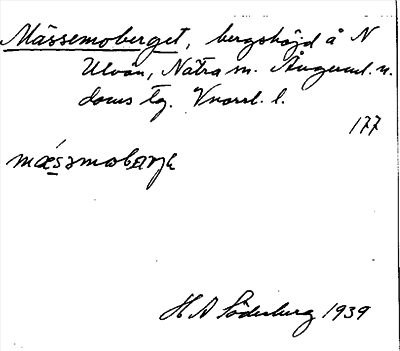 Mässemoberget, bergshöjd å N
Ulvön, Nätra sn. Ångerml. n.
doms tg. Vnorrl. l.
177
mǽsəmobærjə
H A Söderberg 1939